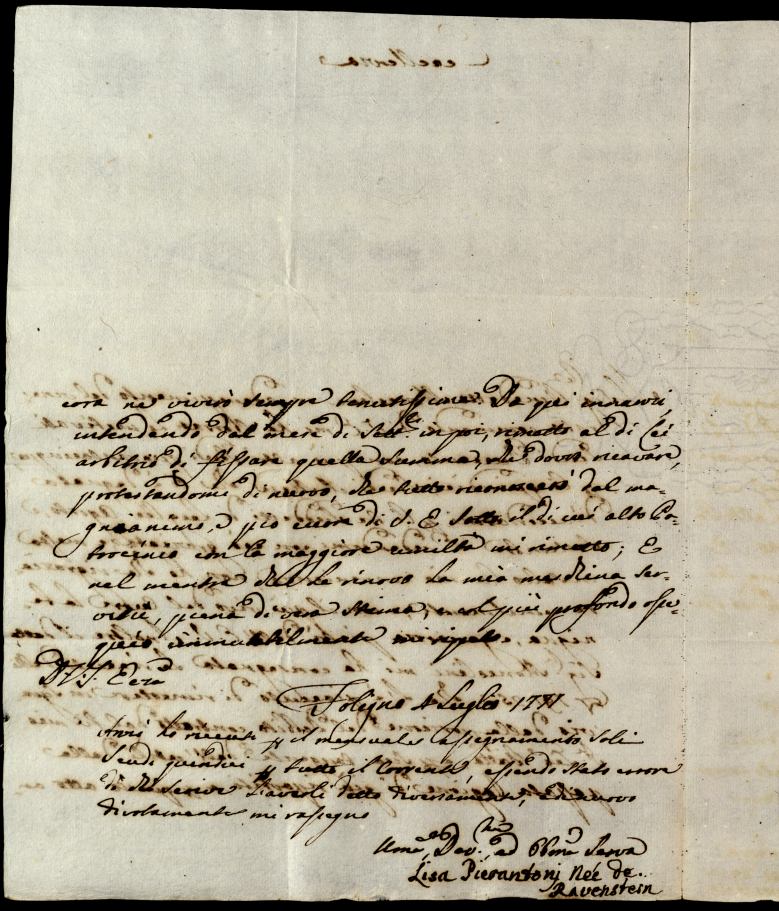 cora ne viverò sempre tenutissima. Da qui innanzi
intendendo dal mese di Sett.e in poi, rimetto al di Lei
arbitrio di fissare quella Summa, che dovrò ricavare,
protestandomi di nuovo, che tutto riconoscerò dal ma-
gnanimo, e pio cuore di V. E. Sotto il di cui alto Pa-
trocinio con la maggiore umiltà mi rimetto; E
nel mentre che Le rinovo la mia meschina ser-
vitù, piena di vera stima, e col più profondo osse-
quio immutabilmente mi ripeto
Di V. E.
Foligno 4 Luglio 1771
Anzi ho ricevuti p il mensuale assegnamento soli
Scudi quindici p tutto il corrente, essendo stato errore
di chi scrive l'averli detto diversamente, e di nuovo
divotamente mi rassegno
Uma, Dev. ed Obma Serva
Lisa Pierantonj Née de
Ravenstein